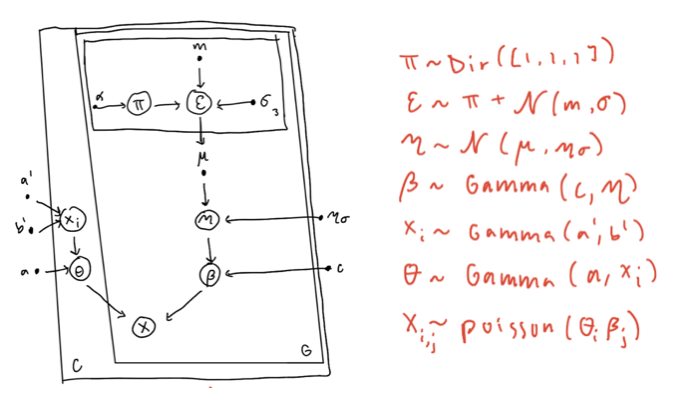 m
α
π
ε
σ
3
μ
a'
b'
x_i
η
ησ
a
θ
β
c
X
C
G
π ~ Dir([1,1,1])
ε ~ π + N(m,σ)
η ~ N(μ,ησ)
β ~ Gamma(c,η)
x_i ~ Gamma(a',b')
θ ~ Gamma(a,x_i)
X_i,j ~ poisson(θ_i β_j)